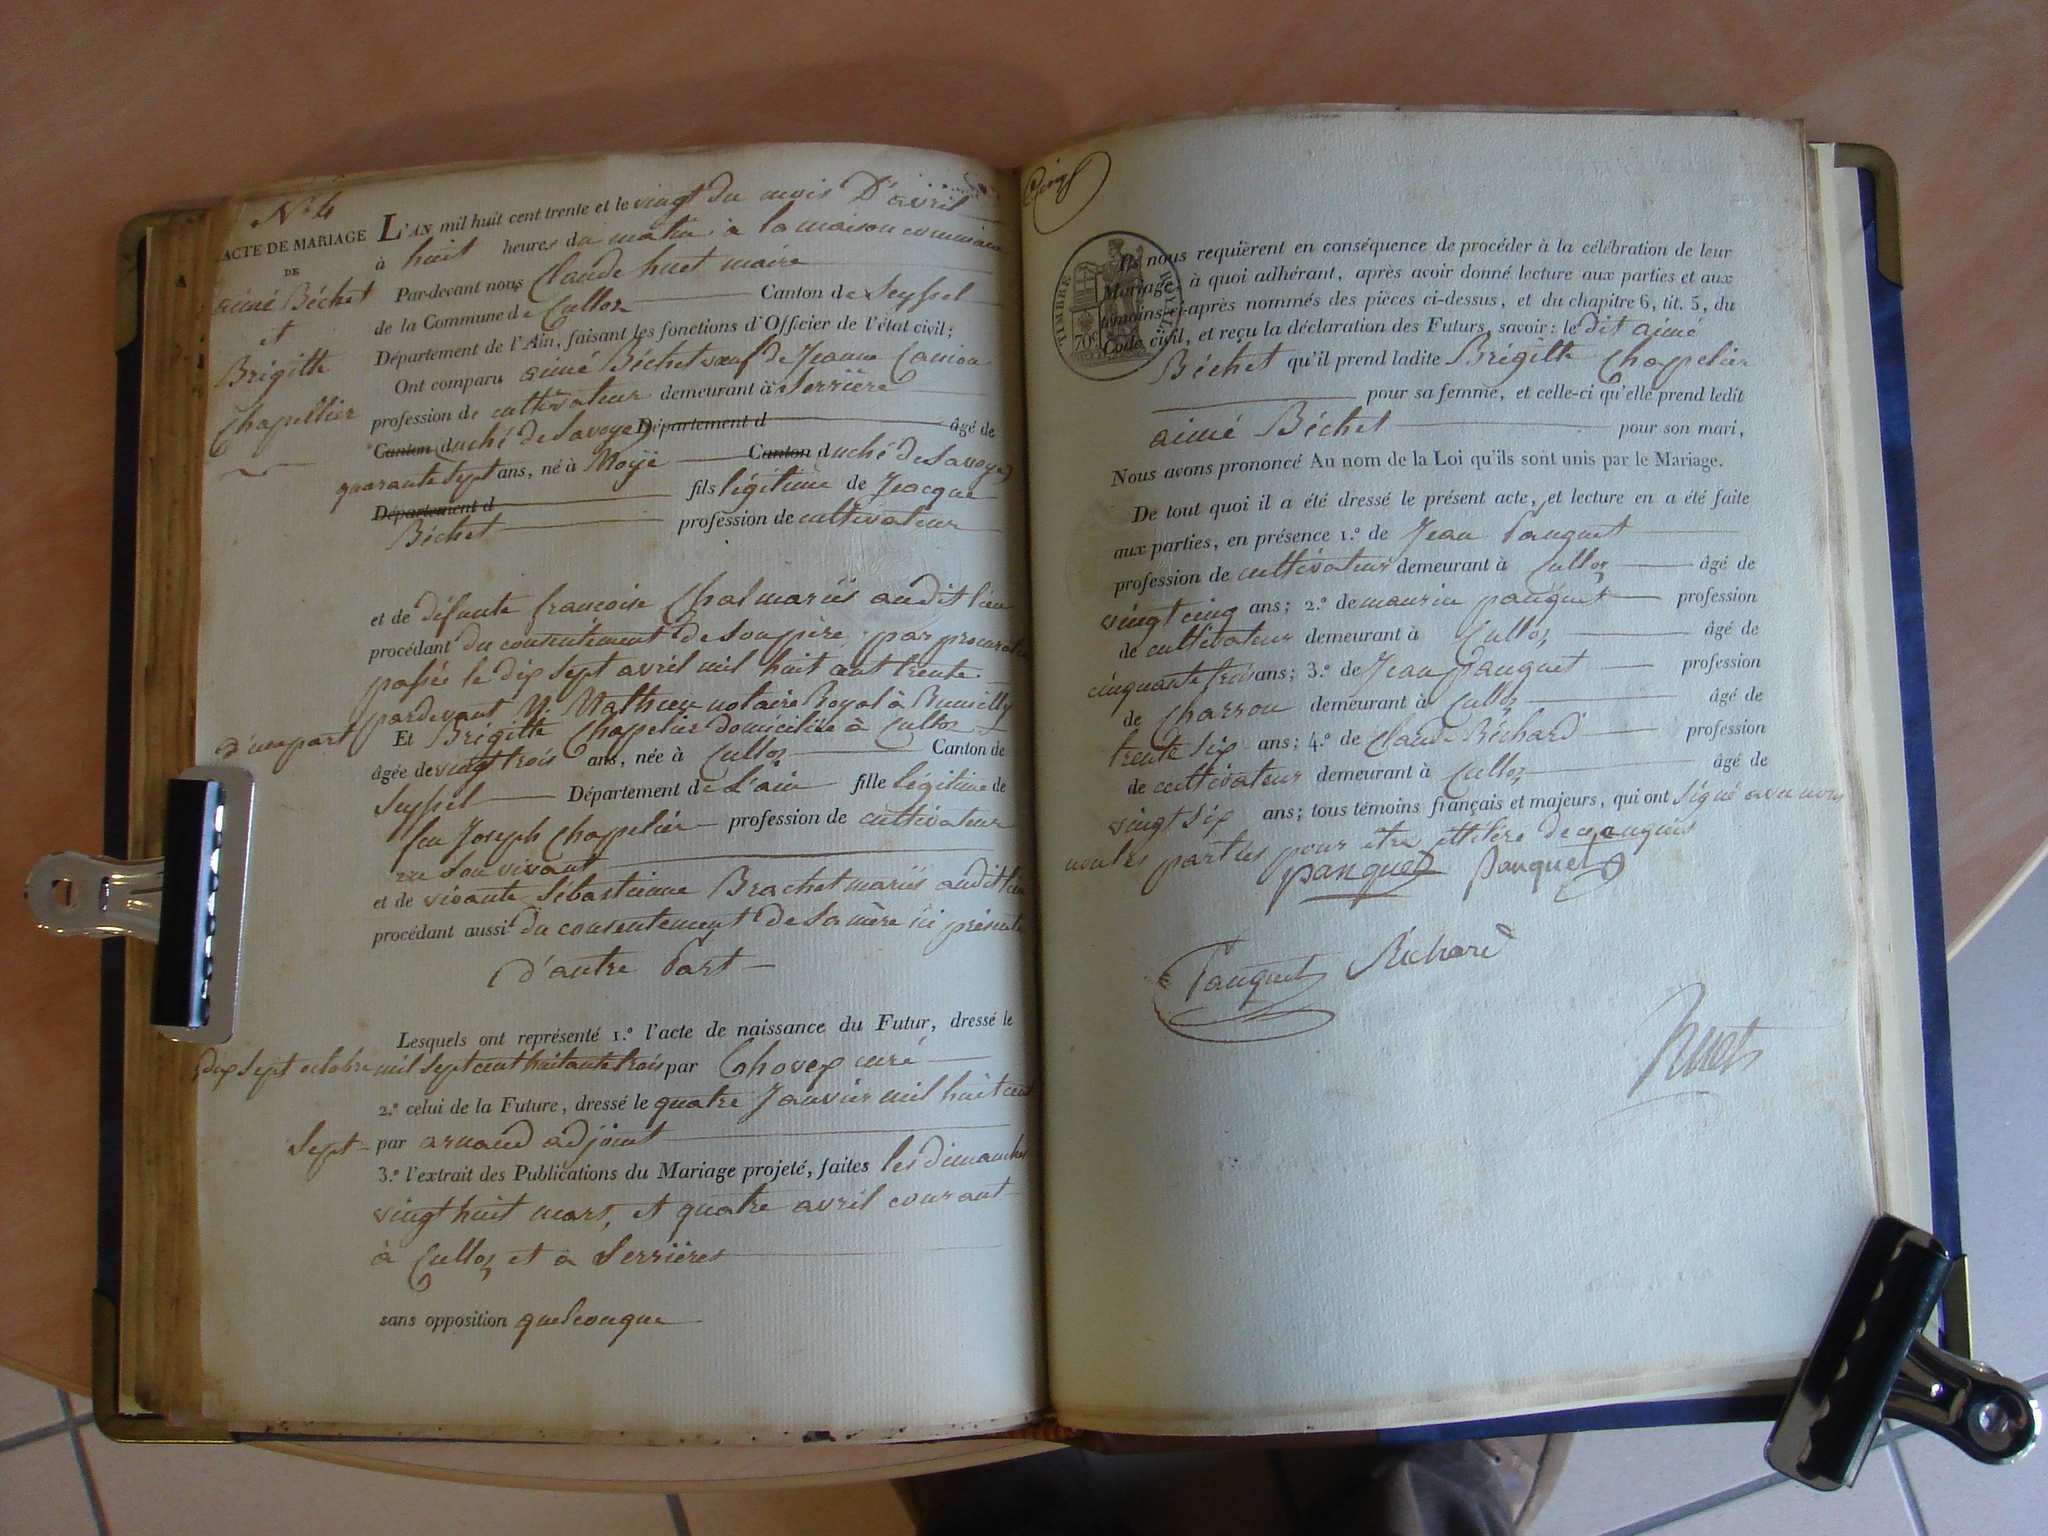 N° 4
ACTE DE MARIAGE
DE
aimé Béchet
et
Brigitte
Chapellier
L'AN mil huit cent trente et le vingt du mois D'avril
à huit heures du matin à la maison commune
Par-devant nous Claude huet maire
de la Commune de Culloz Canton de Seyssel
Département de l'Ain, faisant les fonctions d'Officier de l'état civil;
Ont comparu aimé Béchet veuf de Jeanne
profession de cultivateur demeurant à Serrière
Canton duché de Savoye) Département d âgé de
quarante sept ans, né à Moÿe Canton duché de Savoye)
Département d fils légitime de Jacque
Béchet profession de cultivateur
et de défunte francoise Chal mariés audit lieu
procédant du consentement de Son père par procuration
passée le dix sept avril mil huit cent trente
pardevant M Mathieu notaire Royal à Rumilly
d'une part
Et Brigitte Chapelier domiciliée à Culloz
âgée de vingt trois ans, née à Culloz Canton de
Seyssel Département de L'ain fille légitime de
feu Joseph Chapelier profession de cultivateur
en Son vivant
et de vivante Sébastienne Brachet mariés audit lieu
procédant aussi du consentement de Sa mère ici présente
d'autre Part
Lesquels ont représenté 1.° l'acte de naissance du Futur, dressé le
dix sept octobre mil sept cent huitante trois par Chovex curé
2.° celui de la Future, dressé le quatre Janvier mil huit cent
Sept par arnaud adjoint
3.° l'extrait des Publications du Mariage projeté, faites les dimanches
vingt huit mars, et quatre avril courant
à Culloz et à Serrières
sans opposition quelconque
Cinq
TIMBRE ROYAL
70c
Ils nous requièrent en conséquence de procéder à la célébration de leur
Mariage, à quoi adhérant, après avoir donné lecture aux parties et aux
témoins ci-après nommés des pièces ci-dessus, et du chapitre 6, tit. 5, du
Code civil, et reçu la déclaration des Futurs, savoir: le dit aimé
Béchet qu'il prend ladite Brégitte Chapelier
pour sa femme, et celle-ci qu'elle prend ledit
aimé Béchet pour son mari,
Nous avons prononcé Au nom de la Loi qu'ils sont unis par le Mariage.
De tout quoi il a été dressé le présent acte, et lecture en a été faite
aux parties, en présence 1.° de Jean Panguet
profession de cultivateur demeurant à Culloz âgé de
vingt cinq ans; 2.° de maurin panguet profession
de cultivateur demeurant à Culloz âgé de
cinquante trois ans; 3.° de Jean Panguet profession
de Charron demeurant à Culloz âgé de
trente Six ans; 4.° de Claude Réchard profession
de cultivateur demeurant à Culloz âgé de
vingt Six ans; tous témoins français et majeurs, qui ont Signé avec nous
non les parties pour être illitéré de ce enquis
panguet panguet
Panguet Richard
huet